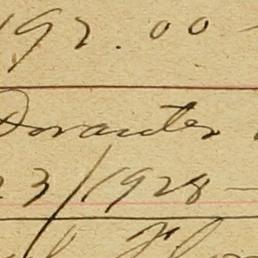 192.00 -
Dorauter
23/1928 -